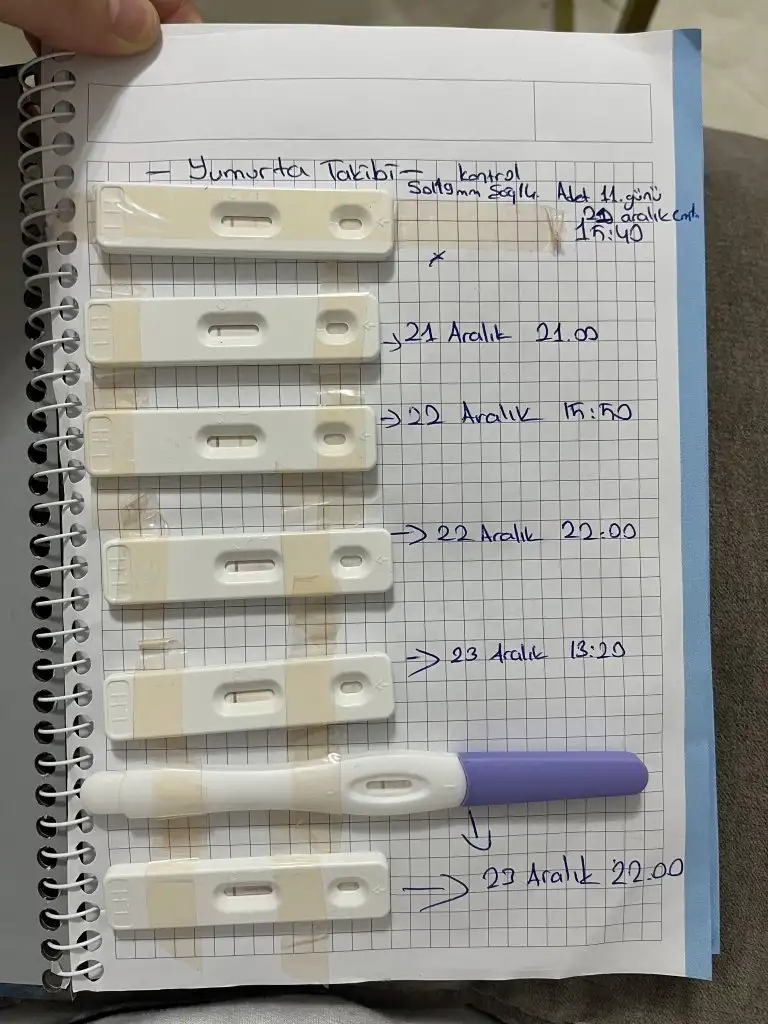 — Yumurta Takibi —
kontrol
Sol 19mm Sağ 14.
Adet 11. günü
aralık cmt.
15:40
x
→ 21 Aralık 21.00
→ 22 Aralık 15:50
→ 22 Aralık 22:00
→ 23 Aralık 13:20
→ 23 Aralık 22.00